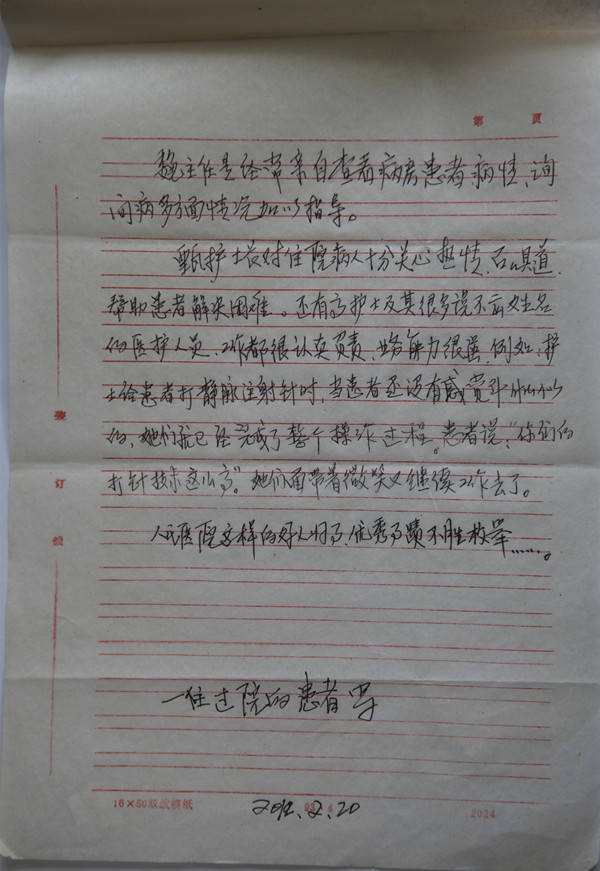 第 页
魏主任是经常亲自查看病房患者病情,询
问病多方面情况加以指导。
甄护士长对住院病人十分关心热情,
帮助患者解决困难。还有高护士及其很多说不的姓名
的医护人员,工作都很认真负责,业务能力很强,例如:护
士给患者打静脉注射针时,当患者还没有感觉到什么
的,她们就已经完成了整个操作过程。患者说:“你们的
打针技术这么高”。她们面带着微笑又继续工作去了。
人民医院这样的好人好事,优秀事蹟不胜枚举……。
一住过院的患者写
2012.2.20
装
订
线
16×50双线稿纸
2024